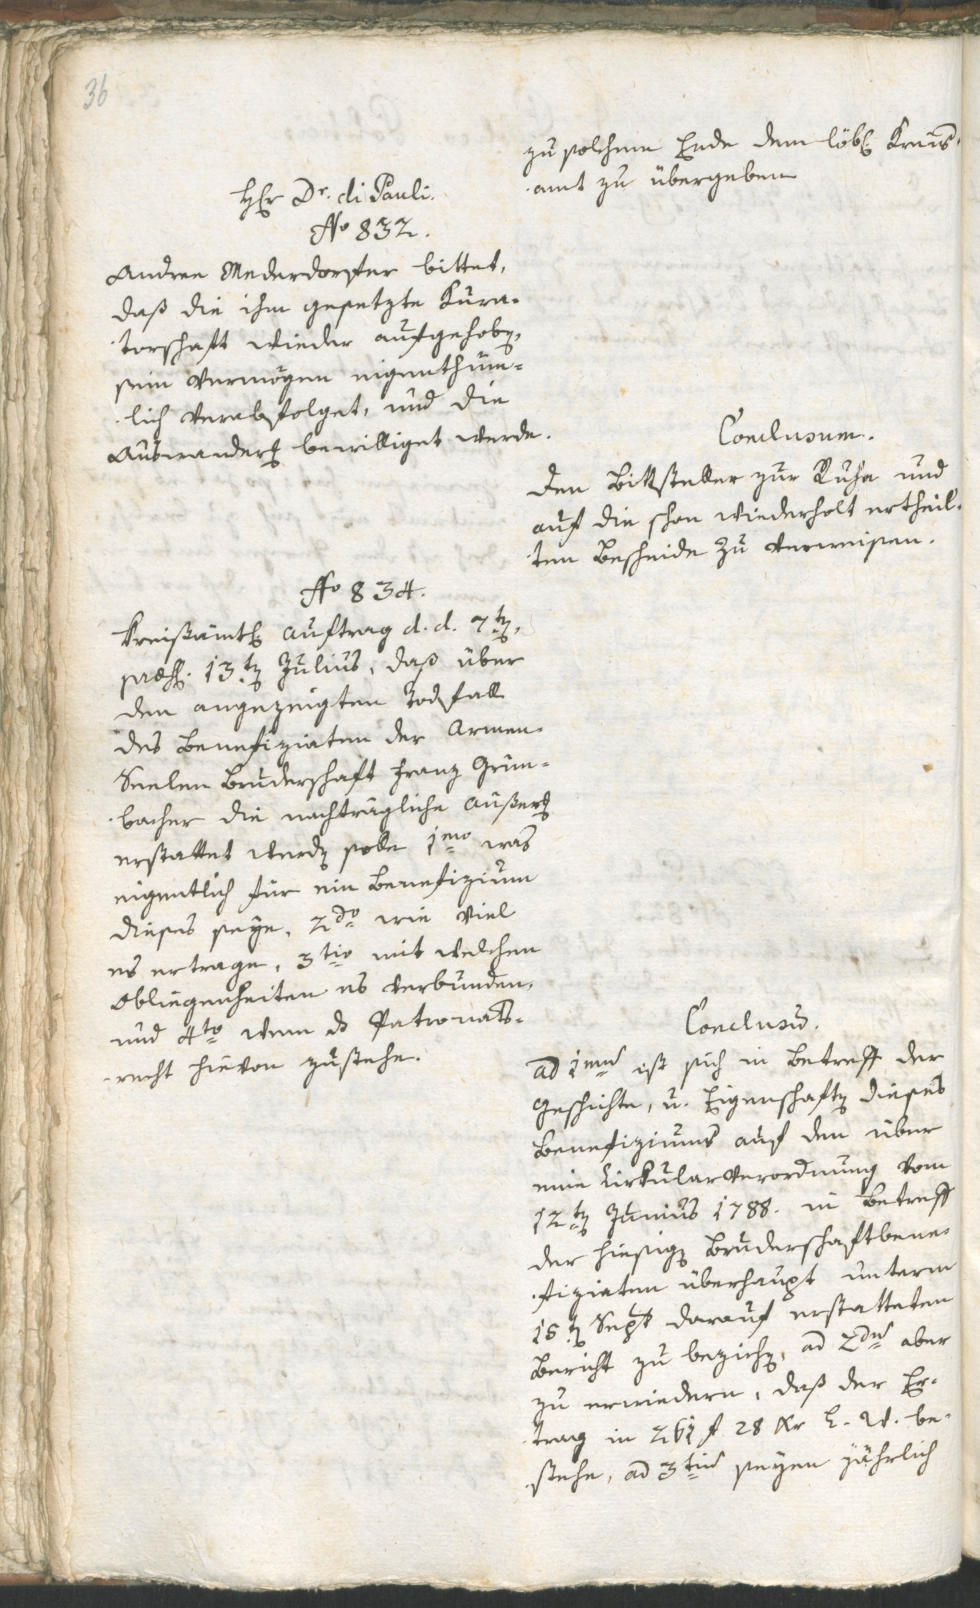 36
zu solchem Ende dem löbl. Kreis-
amt zu übergeben
Hr Dr. di Pauli.
No 832.
Andree Mederdorfer bittet,
daß die ihm gesetzte Kura-
torschaft wieder aufgehobn,
sein Vermögen eigenthüm-
lich verabfolget, und die
Auswanderg bewilliget werde.
Conclusum.
Den Bittsteller zur Ruhe und
auf die schon wiederholt ertheil-
ten Bescheide zu verweisen.
No 834.
Kreißämtl Auftrag d. d. 7tn,
præs. 13tn Julius, daß über
den angezeigten Todfall
des Benefiziaten der Armen-
Seelen Bruderschaft Franz Grün-
bacher die nachträgliche Außerg
erstattet werdn solle 1mo was
eigentlich für ein Benefizium
dieses seye, 2do wie viel
es ertrage, 3tio mit welchen
Obliegenheiten es verbunden,
und 4to wem ds Patronats-
recht hievon zustehe.
Conclusū.
ad 1mū ist sich in Betreff der
Geschichte, u. Eigenschaftn dieses
Benefiziums auf den über
eine Cirkularverordnung vom
12tn Junius 1788. in Betreff
der hiesign Bruderschaftbene-
fiziaten überhaupt unterm
15tn Sept darauf erstatteten
Bericht zu beziehn, ad 2dū aber
zu erwiedern, daß der Er-
trag in 261 f 28 Kr T. W. be-
stehe, ad 3tiū seyen jährlich